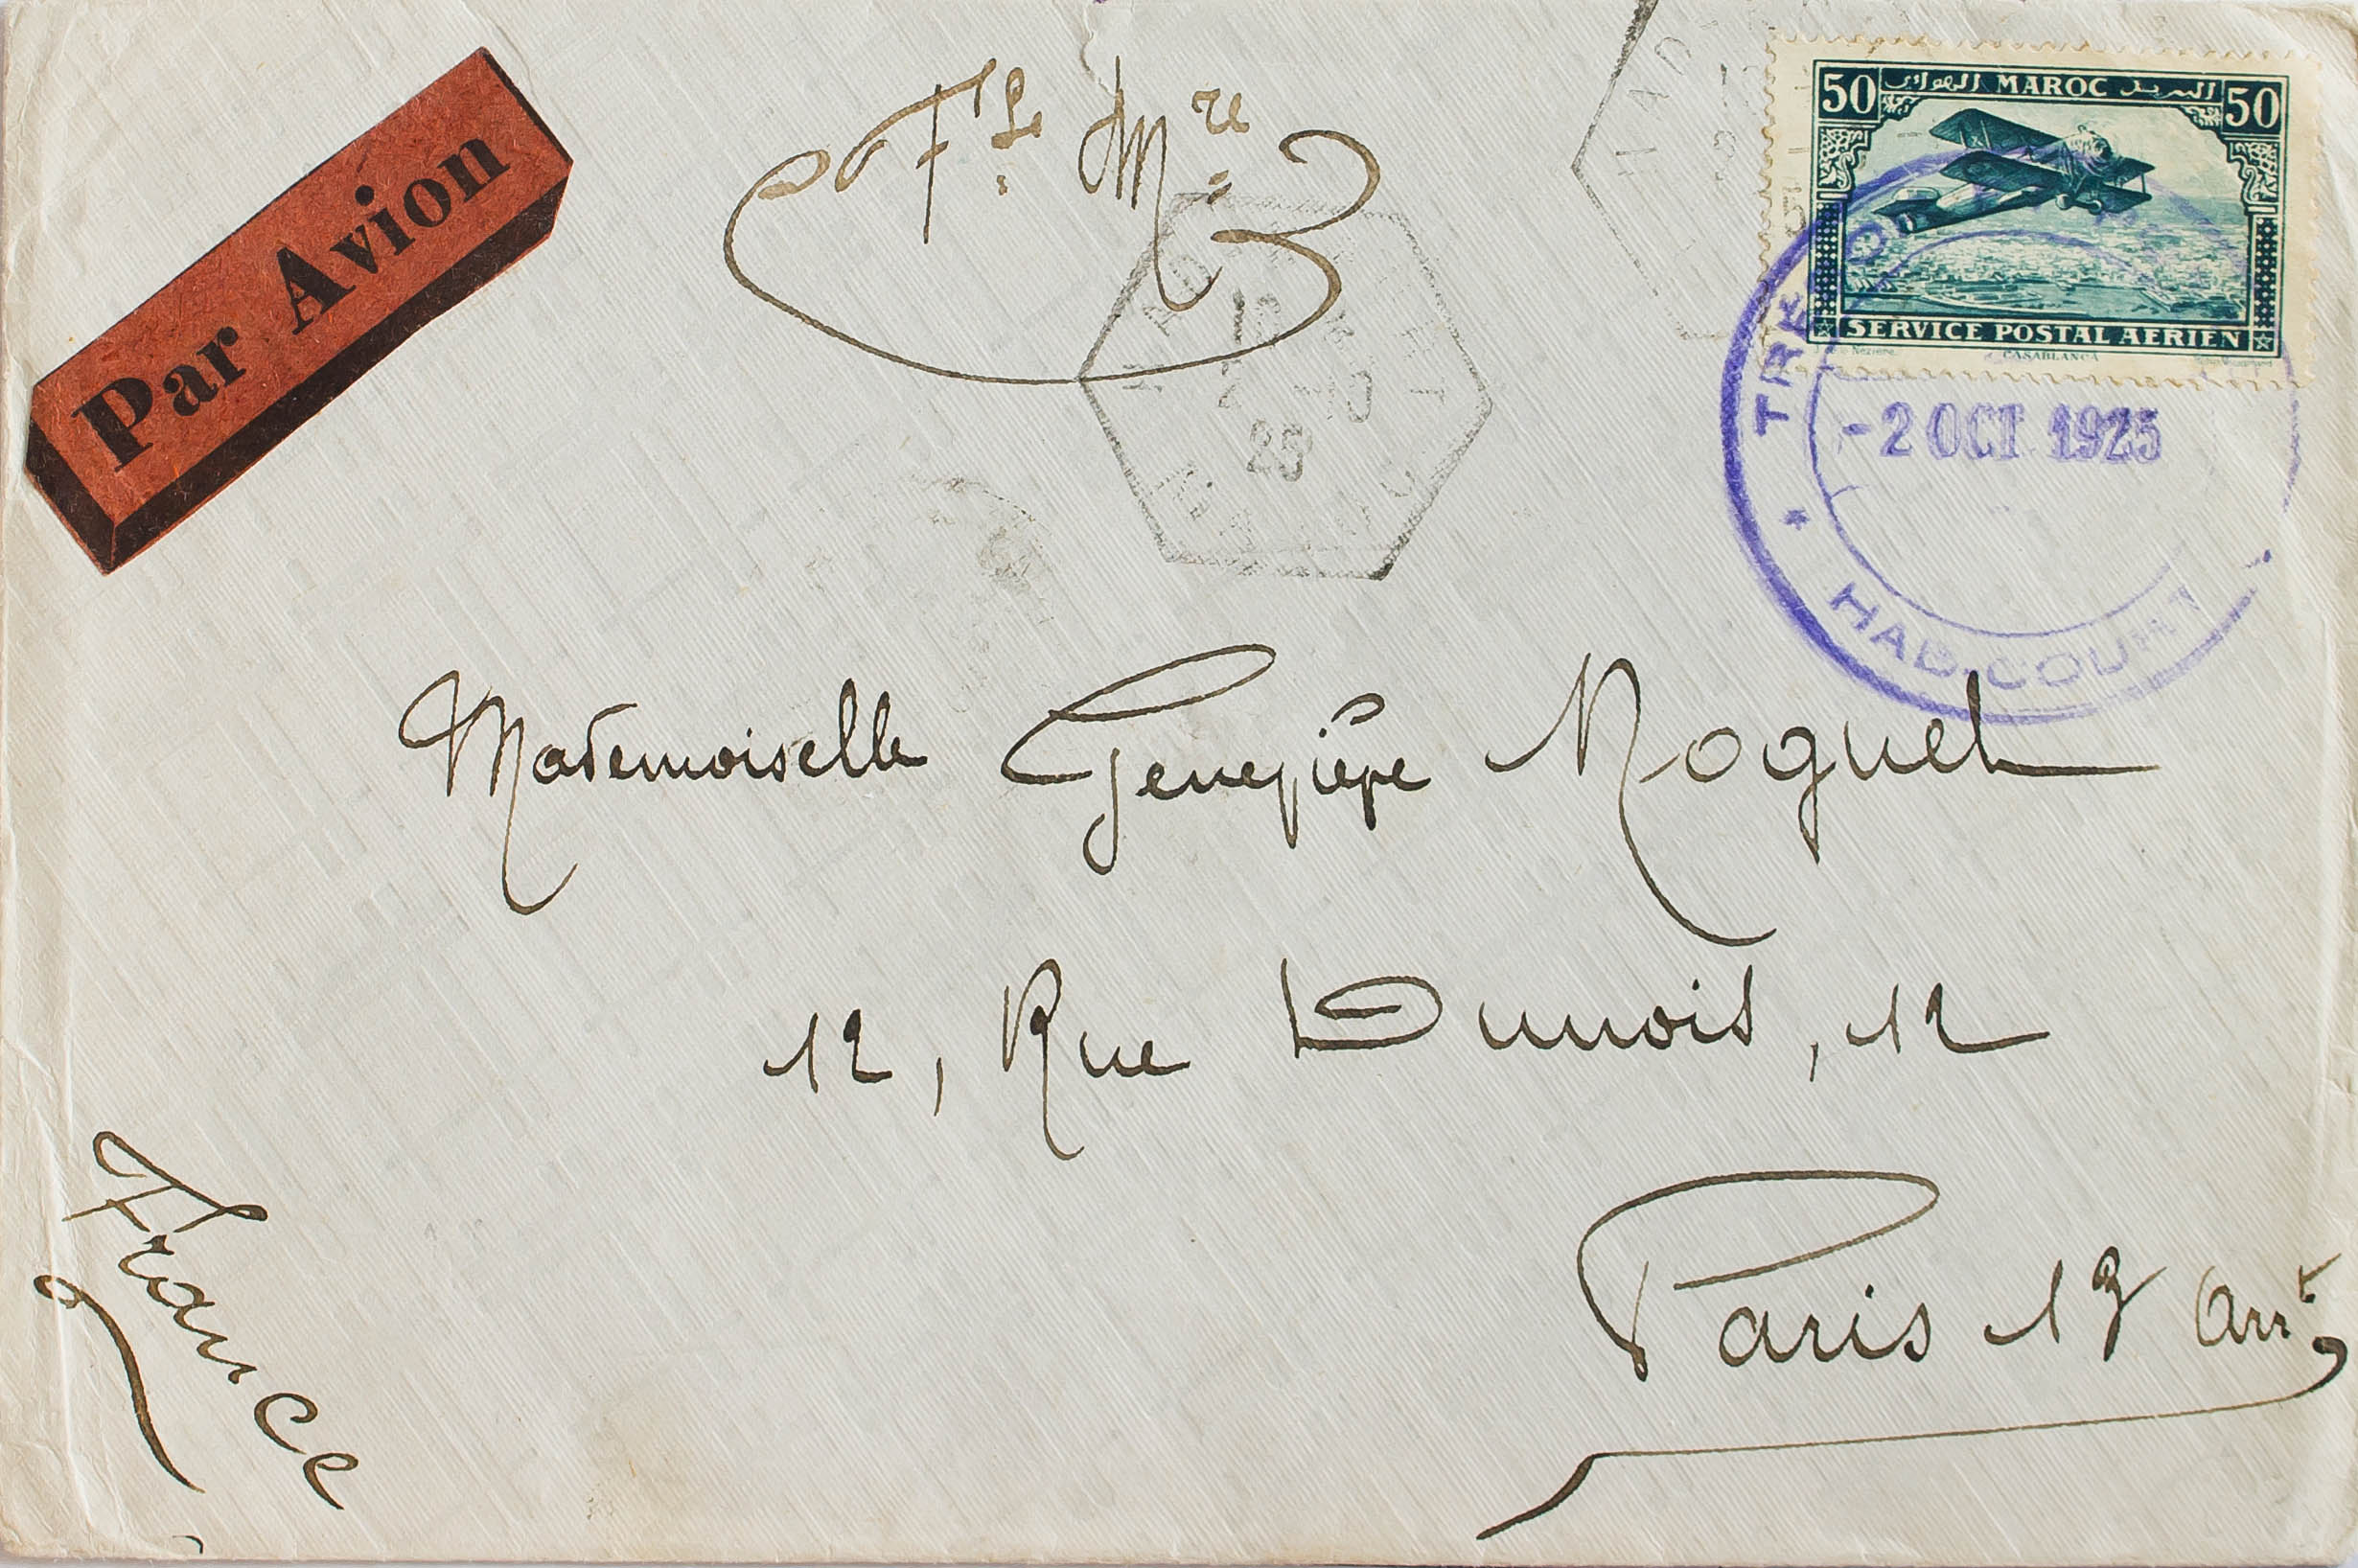 Par Avion
F.le M.re
50 MAROC البريد الهوائي 50
SERVICE POSTAL AERIEN
CASABLANCA
-2 OCT 1925
HAD-COURT
25
Mademoiselle Geneviève Noguel
12, Rue Dunois, 12
Paris 13 Arr.t
France